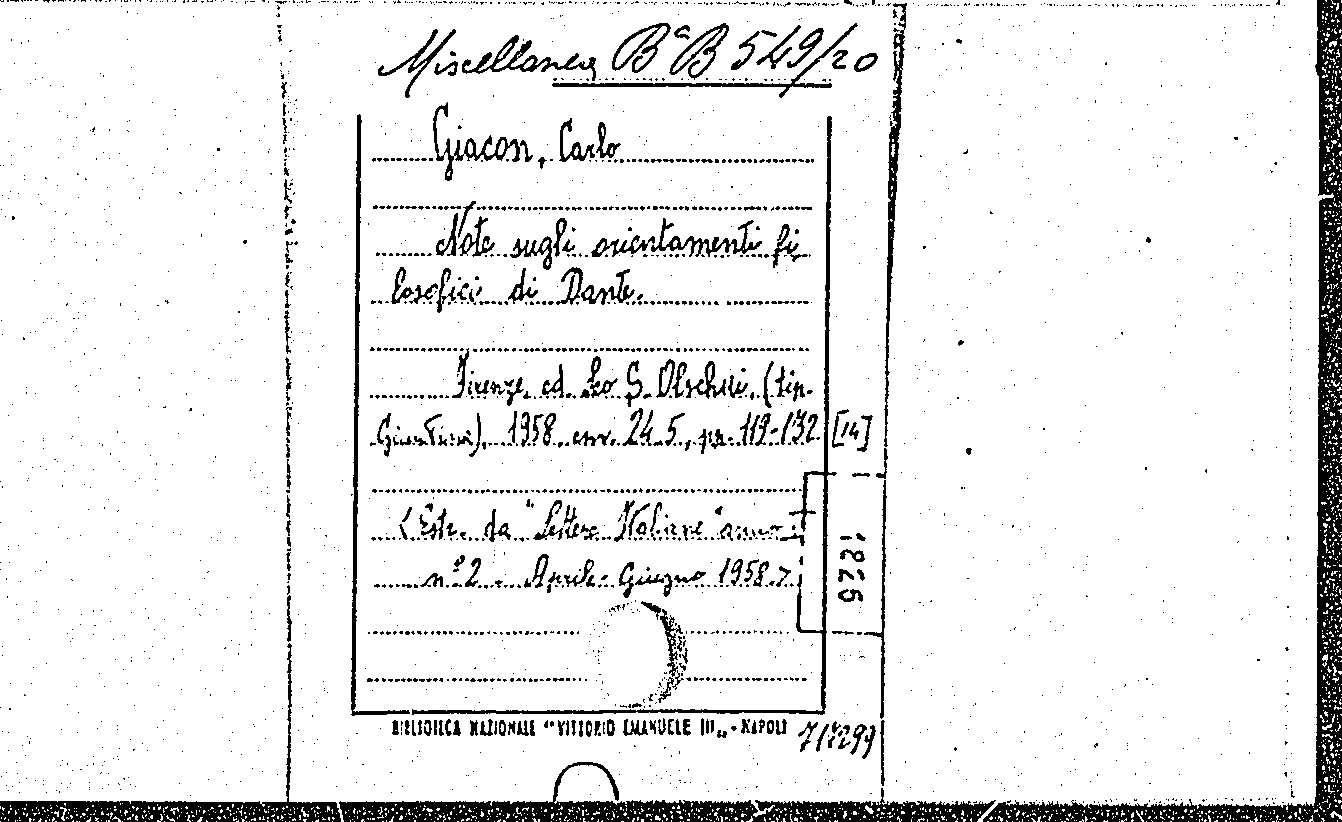 Miscellanea Bª B 549/20
Giacon, Carlo
Note sugli orientamenti fi
losofici di Dante.
Firenze, ed. Leo S. Olschki, (tip.
Giuntina), 1958, cm. 24.5, pp. 119-132 [14]
<Estr. da "Lettere Italiane" anno
n.º 2 - Aprile-Giugno 1958.>
1826
BIBLIOTECA NAZIONALE "VITTORIO EMANUELE III„ - NAPOLI